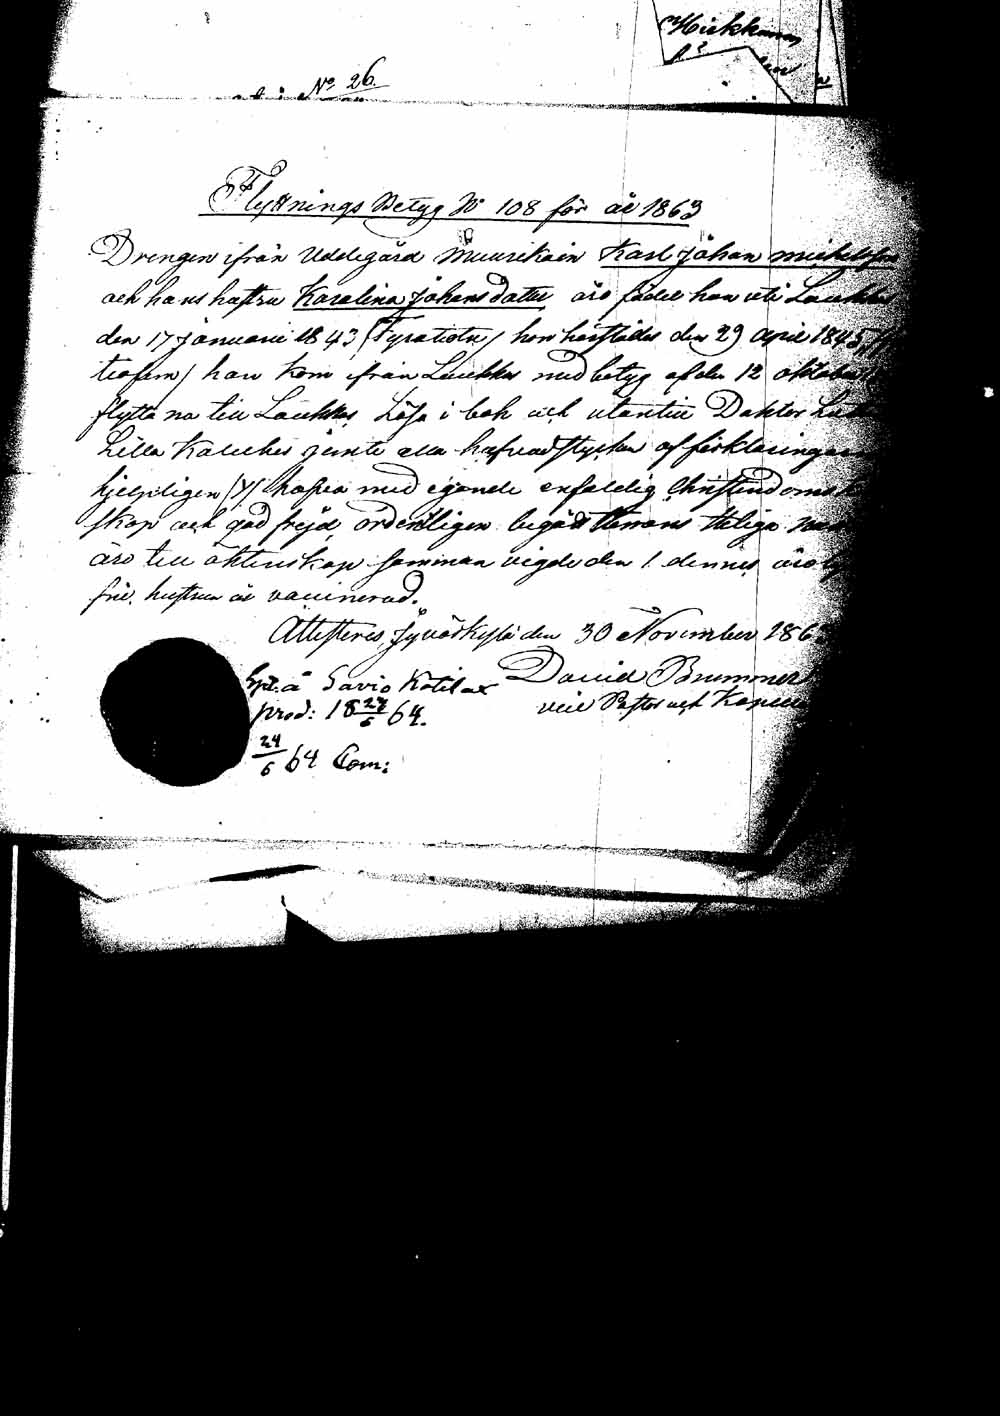 Hickkanen
No 26.
Flyttnings Betyg No 108 för år 1863
Drengen ifrån Uddegård Muurikain Karl Johan Michelsson
och hans hustru Karolina Johansdotter äro födde han uti Laukkas
den 17 Januarii 1843 / han kom härstädes den 29 April 1845
han kom ifrån Laukkas med betyg af den 12 oktober
flytta nu till Laukkas, Läsa i bok och utantill Doktor Luth
Lilla Kateches jemte alla hufvudstycken af förklaringen
hjelpligen (Y) hafva med egande enfaldig Christendoms k
skap och god frejd ordentligen begått Herrans Heliga Natt
äro till äktenskap samman vigde den 1 dennes, äro ly
frie, hustrun är vaccinerad.
Attesteras, Jyväskylä den 30 November 186
David Brummer
vice Pastor och Kapell
Spl. à Savio Kotilax
prod: 18 27/6 64.
24/6 64 Com: